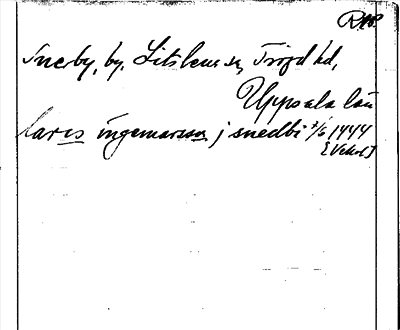 Snerby, by, Litslena sn, Trögd hd,
Uppsala län
laris ingemarsson j snedbi 7/6 1444